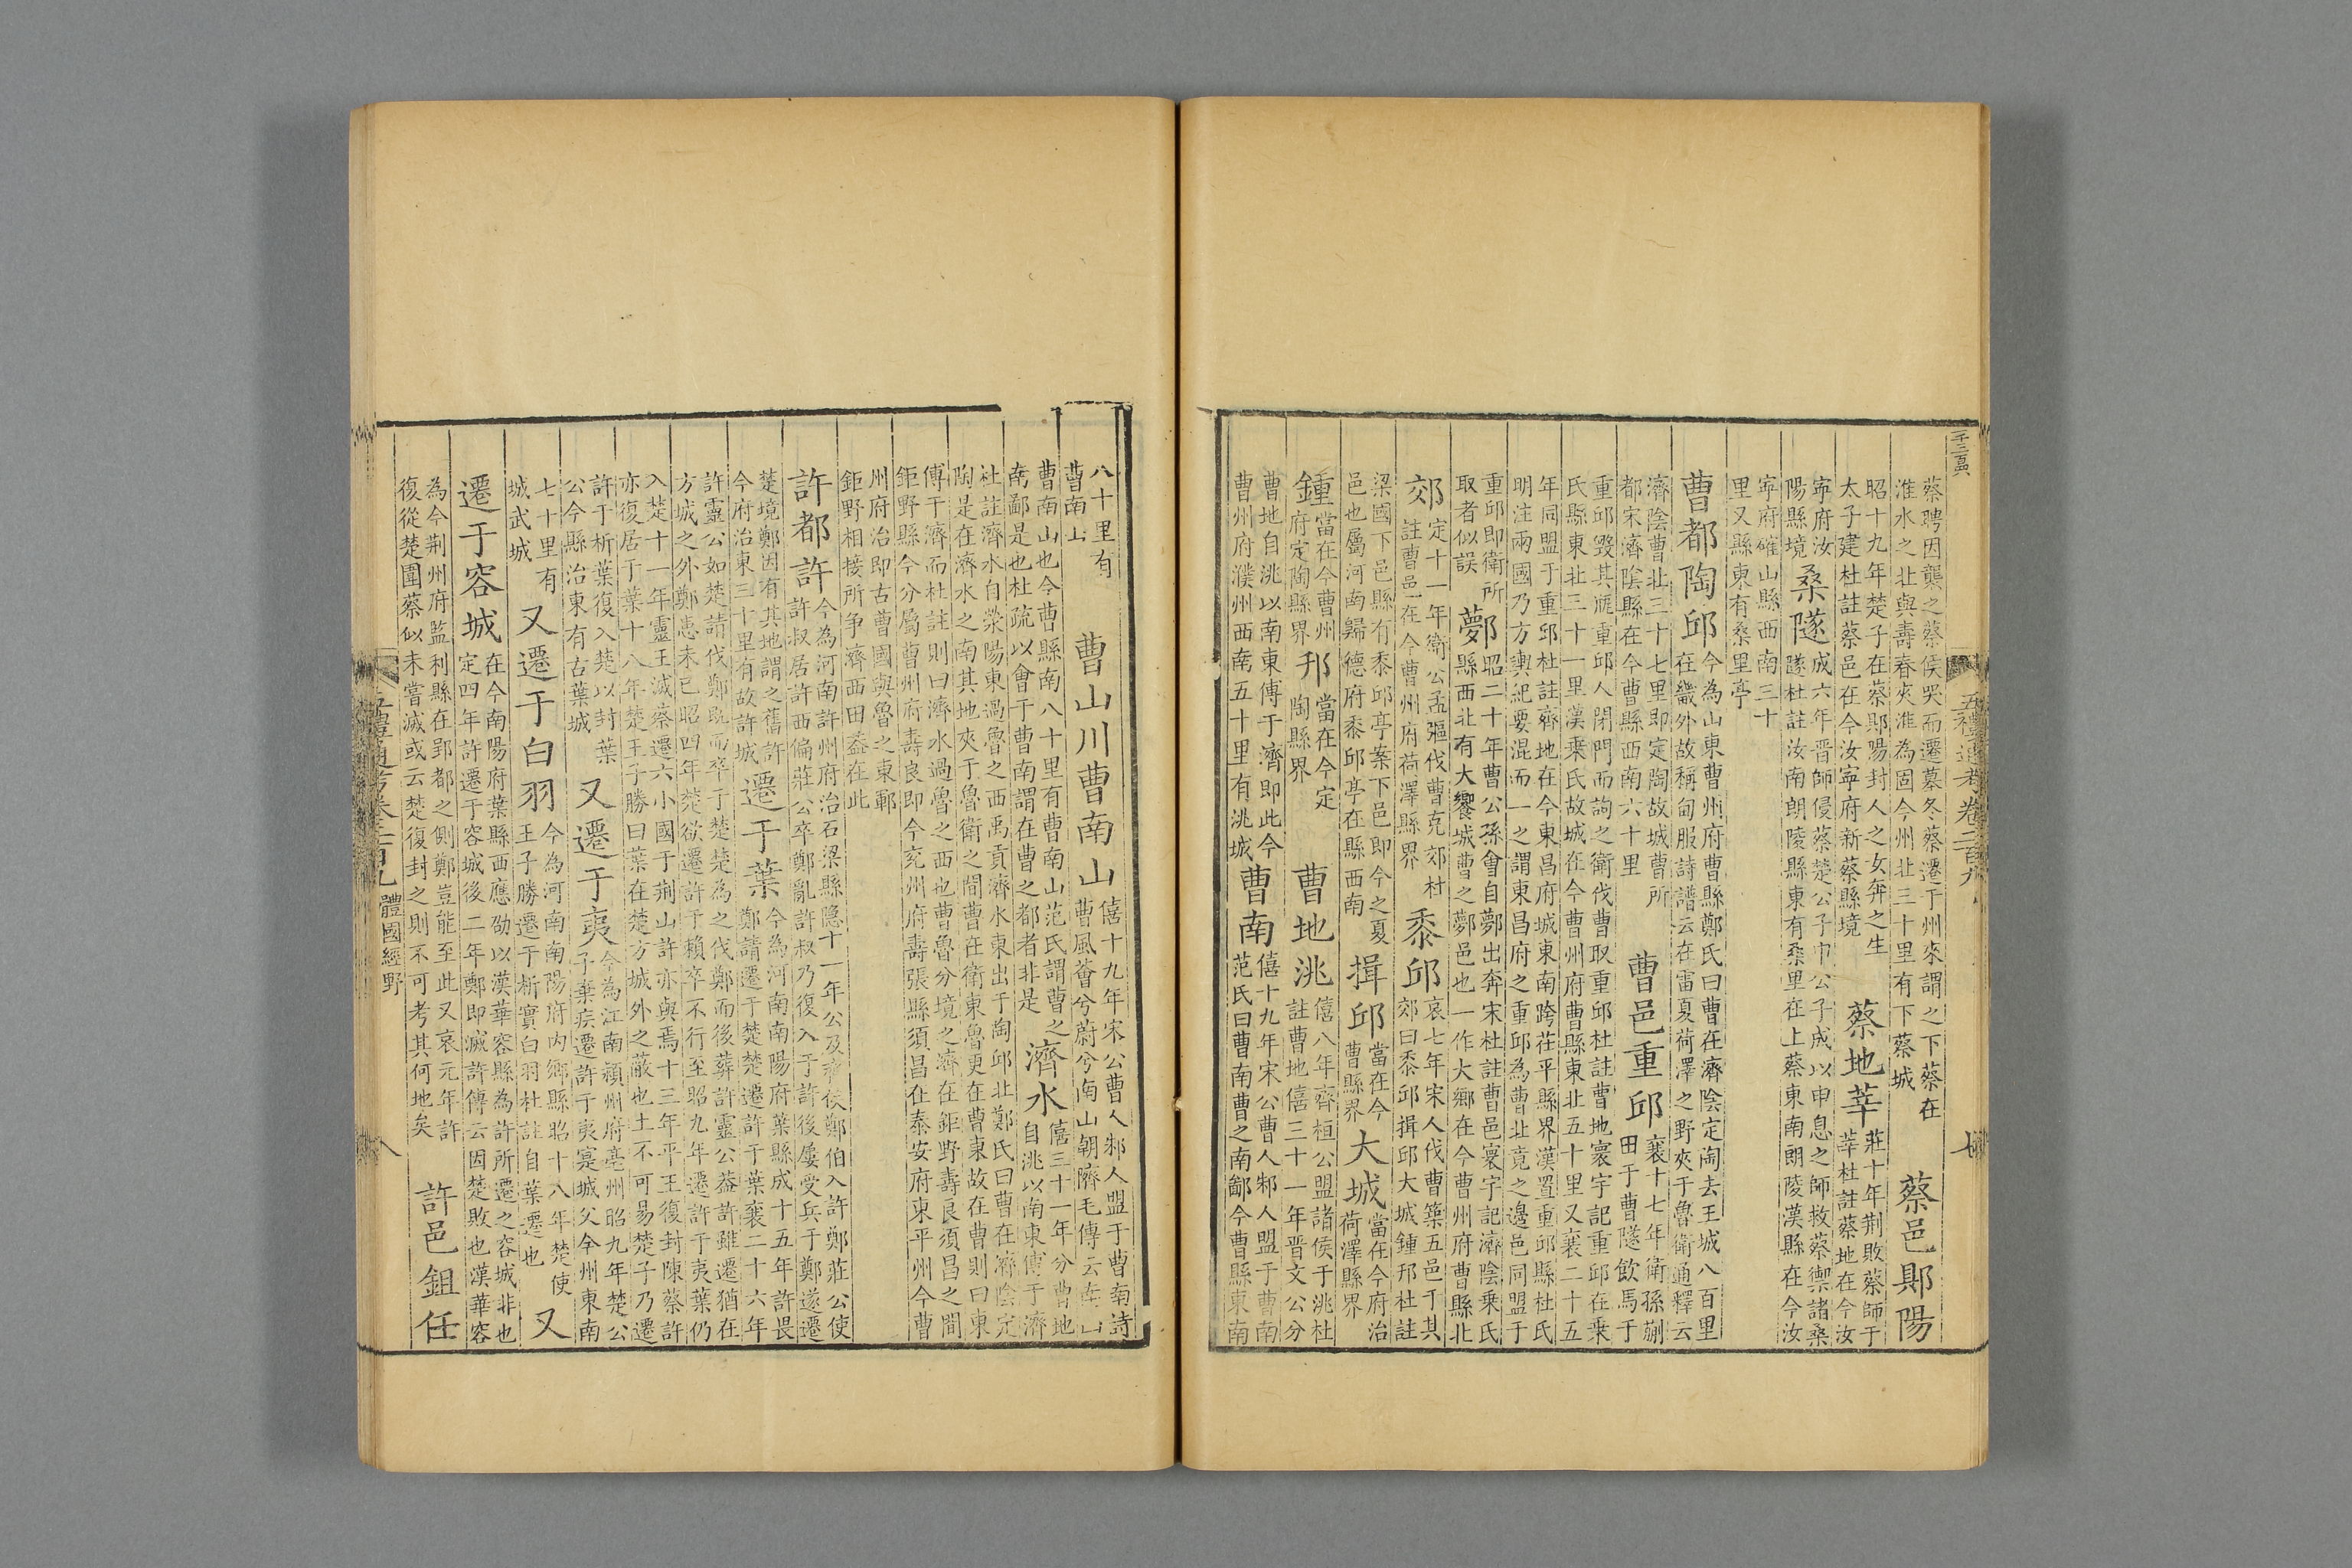 蔡聘因襲之蔡侯哭而遷墓冬蔡遷于州來謂之下蔡在
淮水之北與壽春夾淮為固今州北三十里有下蔡城
蔡邑郹陽
昭十九年楚子在蔡郹陽封人之女奔之生
太子建杜註蔡邑在今汝寧府新蔡縣境
蔡地莘
莊十年荆敗蔡師于
莘杜註蔡地在今汝
寧府汝
陽縣境
桑隧
成六年晋師侵蔡楚公子申公子成以申息之師救蔡禦諸桑
隧杜註汝南朗陵縣東有桑里在上蔡東南朗陵漢縣在今汝
寧府確山縣西南三十
里又縣東有桑里亭
曹都陶邱
今為山東曹州府曹縣鄭氏曰曹在濟陰定陶去王城八百里
在畿外故稱甸服詩譜云在雷夏荷澤之野夾于魯衛通釋云
濟陰曹北三十七里即定陶故城曹所
都宋濟陰縣在今曹縣西南六十里
曹邑重邱
襄十七年衛孫蒯
田于曹隧飲馬于
重邱毀其瓶重邱人閉門而詢之衛伐曹取重邱杜註曹地寰宇記重邱在乗
氏縣東北三十一里漢乗氏故城在今曹州府曹縣東北五十里又襄二十五
年同盟于重邱杜註齊地在今東昌府城東南跨茌平縣界漢置重邱縣杜氏
明注兩國乃方輿紀要混而一之謂東昌府之重邱為曹北竟之邊邑同盟于
重邱即衛所
取者似誤
鄸
昭二十年曹公孫會自鄸出奔宋杜註曹邑寰宇記濟陰乗氏
縣西北有大饗城曹之鄸邑也一作大鄉在今曹州府曹縣北
郊
定十一年衛公孟彄伐曹克郊杜
註曹邑在今曹州府荷澤縣界
黍邱
哀七年宋人伐曹築五邑于其
郊曰黍邱揖邱大城鍾邘杜註
梁國下邑縣有黍邱亭案下邑即今之夏
邑也屬河南歸德府黍邱亭在縣西南
揖邱
當在今
曹縣界
大城
當在今府治
荷澤縣界
鍾
當在今曹州
府定陶縣界
邘
當在今定
陶縣界
曹地洮
僖八年齊桓公盟諸侯于洮杜
註曹地僖三十一年晋文公分
曹地自洮以南東傅于濟即此今
曹州府濮州西南五十里有洮城
曹南
僖十九年宋公曹人邾人盟于曹南
范氏曰曹南曹之南鄙今曹縣東南
八十里有
曹南山
曹山川曹南山
僖十九年宋公曹人邾人盟于曹南詩
曹風薈兮蔚兮南山朝隮毛傳云南山
曹南山也今曹縣南八十里有曹南山范氏謂曹之
南鄙是也杜疏以會于曹南謂在曹之都者非是
濟水
僖三十一年分曹地
自洮以南東傅于濟
杜註濟水自滎陽東過魯之西禹貢濟水東出于陶邱北鄭氏曰曹在濟陰定
陶是在濟水之南其地夾于魯衛之間曹在衛東魯更在曹東故在曹則曰東
傅于濟而杜註則曰濟水過魯之西也曹魯分境之濟在鉅野壽良須昌之間
鉅野縣今分屬曹州府壽良即今兖州府壽張縣須昌在泰安府東平州今曹
州府治即古曹國與魯之東鄆
鉅野相接所争濟西田葢在此
許都許
今為河南許州府治石梁縣隐十一年公及齊侯鄭伯入許鄭莊公使
許叔居許西偏莊公卒鄭亂許叔乃復入于許後屢受兵于鄭遂遷
楚境鄭因有其地謂之舊許
今府治東三十里有故許城
遷于葉
今為河南南陽府葉縣成十五年許畏
鄭請遷于楚楚遷許于葉襄二十六年
許靈公如楚請伐鄭既而卒于楚楚為之伐鄭而後葬許靈公葢許雖遷猶在
方城之外鄭患未已昭四年楚欲遷許于賴卒不行至昭九年遷許于夷葉仍
入楚十一年靈王滅蔡遷六小國于荆山許亦與焉十三年平王復封陳蔡許
亦復居于葉十八年楚王子勝曰葉在楚方城外之蔽也土不可易楚子乃遷
許于析葉復入楚以封葉
公今縣治東有古葉城
又遷于夷
今為江南潁州府亳州昭九年楚公
子棄疾遷許于夷寔城父今州東南
七十里有
城武城
又遷于白羽
今為河南南陽府内鄉縣昭十八年楚使
王子勝遷于析實白羽杜註自葉遷也
又
遷于容城
在今南陽府葉縣西應劭以漢華容縣為許所遷之容城非也
定四年許遷于容城後二年鄭即滅許傳云因楚敗也漢華容
為今荆州府監利縣在郢都之側鄭豈能至此又哀元年許
復從楚圍蔡似未嘗滅或云楚復封之則不可考其何地矣
許邑鉏任
五禮通考卷二百九
體國經野
八